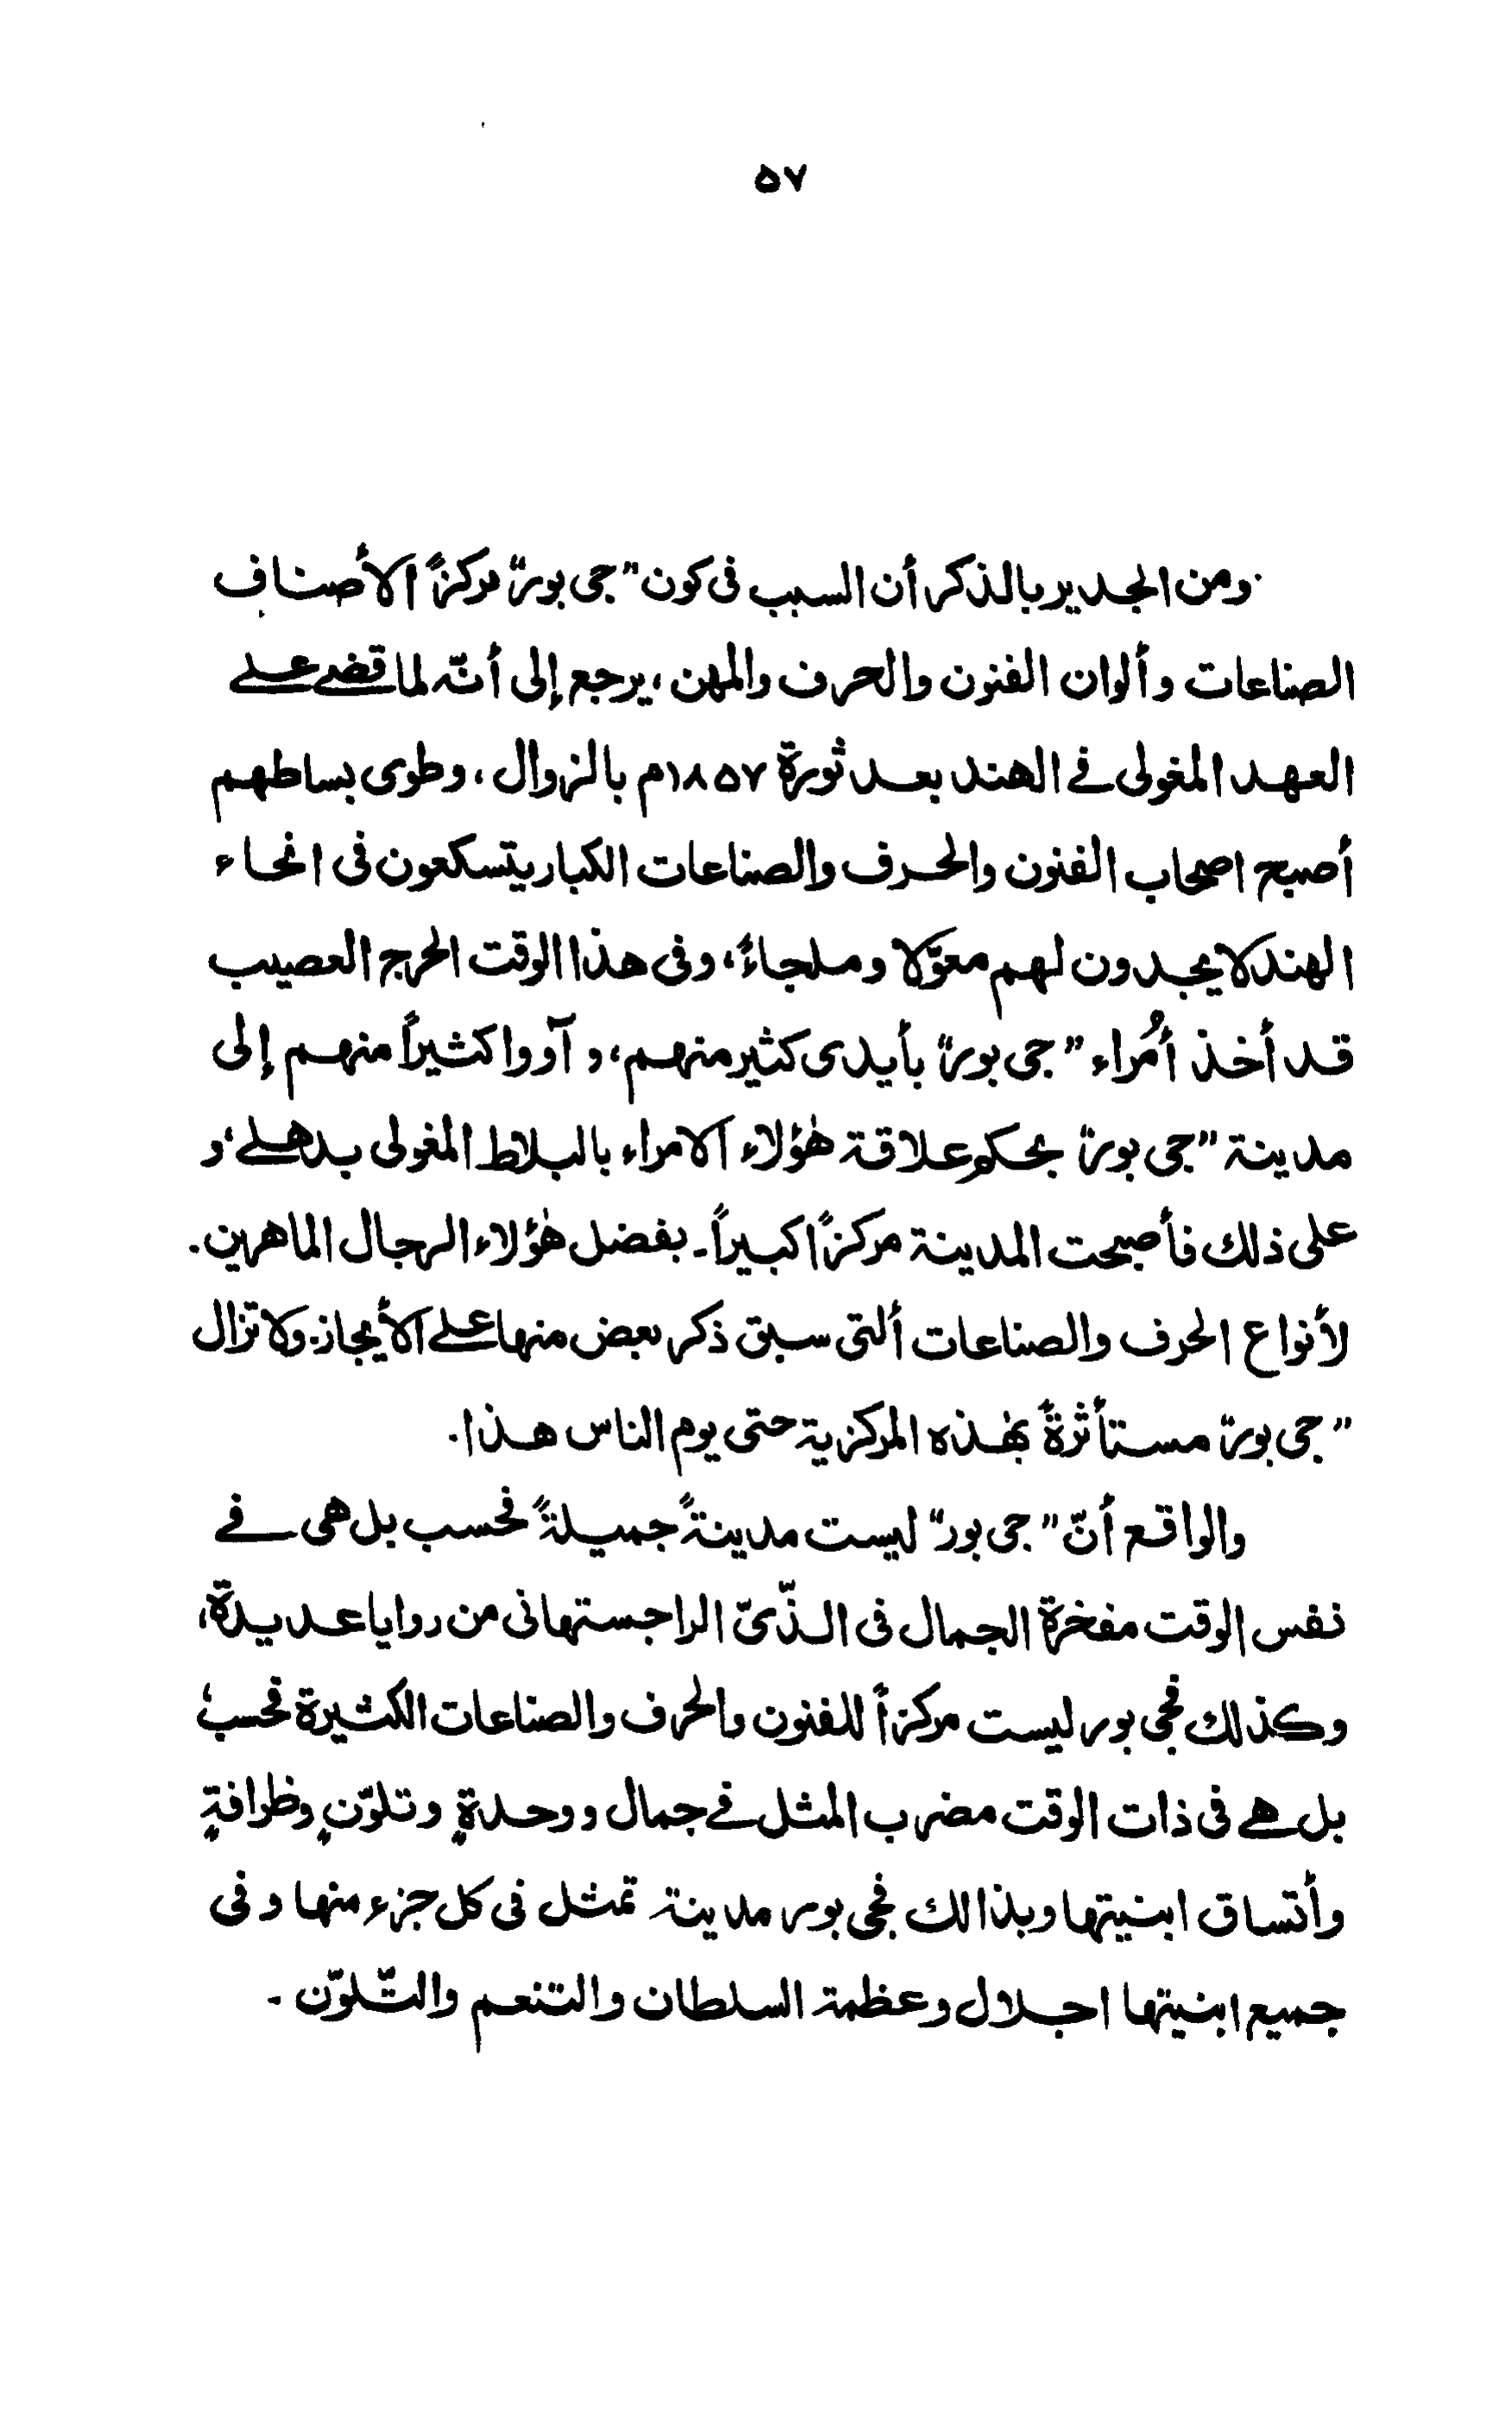 ٥٧
ومن الجدير بالذكر أن السبب فى كون "جى بور" مركزاً الأصناف
الصناعات وألوان الفنون والحرف والمهن، يرجع إلى أنّه لما قضى على
العهد المغولى فى الهند بعد ثورة ١٨٥٧م بالزوال، وطوى بساطهم
أصبح اصحاب الفنون والحرف والصناعات الكبار يتسكعون فى انحاء
الهند لا يجدون لهم معوّلا وملجاءً، وفى هذا الوقت الحرج العصيب
قد أخذ أُمراء "جى بور" بأيدى كثير منهم، وآووا كثيراً منهم إلى
مدينة "جى بور" بحكم علاقة هٰؤلاء الامراء بالبلاط المغولى بدهلى، و
على ذلك فأصبحت المدينة مركزاً كبيراً - بفضل هٰؤلاء الرجال الماهرين.
لأنواع الحرف والصناعات ألتى سبق ذكر بعض منها على الأيجاز. ولا تزال
"جى بور" مستأثرةً بهٰذه المركزية حتى يوم الناس هذا.
والواقع أنّ "جى بور" ليست مدينةً جميلةً فحسب بل هى فى
نفس الوقت مفخرة الجمال فى الذّىّ الراجستهانى من روايا عديدة،
وكذلك فجى بور ليست مركزاً للفنون والحرف والصناعات الكثيرة فحسب،
بل هى فى ذات الوقت مضرب المثل فى جمال ووحدةٍ وتلوّنٍ وظرافةٍ
وأتساق ابنيتها وبذالك فجى بور مدينة تمثل فى كل جزء منها وفى
جميع ابنيتها اجلال وعظمة السلطان والتنعم والتّلوّن -